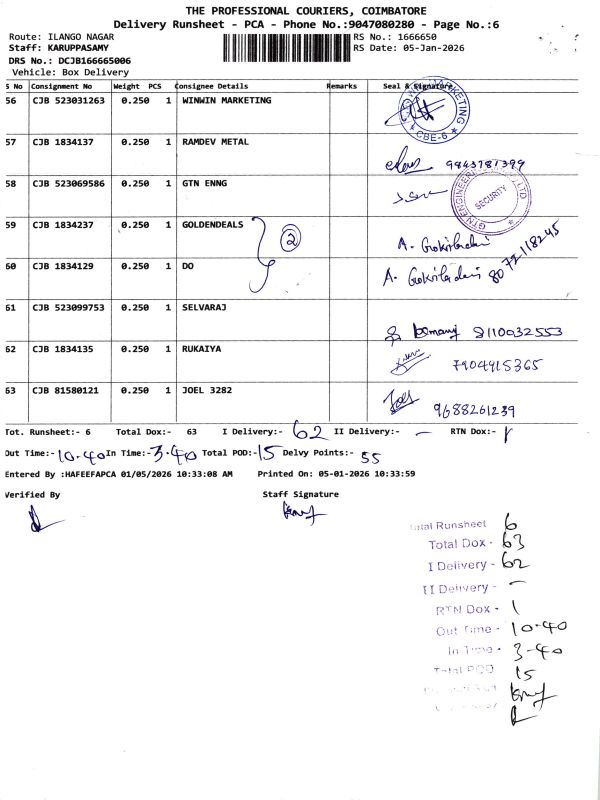 THE PROFESSIONAL COURIERS, COIMBATORE
Delivery Runsheet - PCA - Phone No.:9047080280 - Page No.:6
Route: ILANGO NAGAR RS No.: 1666650
Staff: KARUPPASAMY RS Date: 05-Jan-2026
DRS No.: DCJB166665006
Vehicle: Box Delivery
S No Consignment No Weight PCS Consignee Details Remarks Seal & Signature
56 CJB 523031263 0.250 1 WINWIN MARKETING
MARKETING
CBE-6
57 CJB 1834137 0.250 1 RAMDEV METAL
9843781399
58 CJB 523069586 0.250 1 GTN ENNG
GTN ENGINEERING LTD
SECURITY
59 CJB 1834237 0.250 1 GOLDENDEALS
2
60 CJB 1834129 0.250 1 DO
8072118245
61 CJB 523099753 0.250 1 SELVARAJ
8110032553
62 CJB 1834135 0.250 1 RUKAIYA
7904915365
63 CJB 81580121 0.250 1 JOEL 3282
Joel
9688261239
Tot. Runsheet:- 6 Total Dox:- 63 I Delivery:- 62 II Delivery:- - RTN Dox:- 1
Out Time:- 10.40 In Time:- 3.40 Total POD:- 15 Delvy Points:- 55
Entered By :HAFEEFAPCA 01/05/2026 10:33:08 AM Printed On: 05-01-2026 10:33:59
Verified By Staff Signature
Total Runsheet 6
Total Dox - 63
I Delivery - 62
II Delivery - -
RTN Dox - 1
Out Time - 10.40
In Time - 3-40
Total POD 15